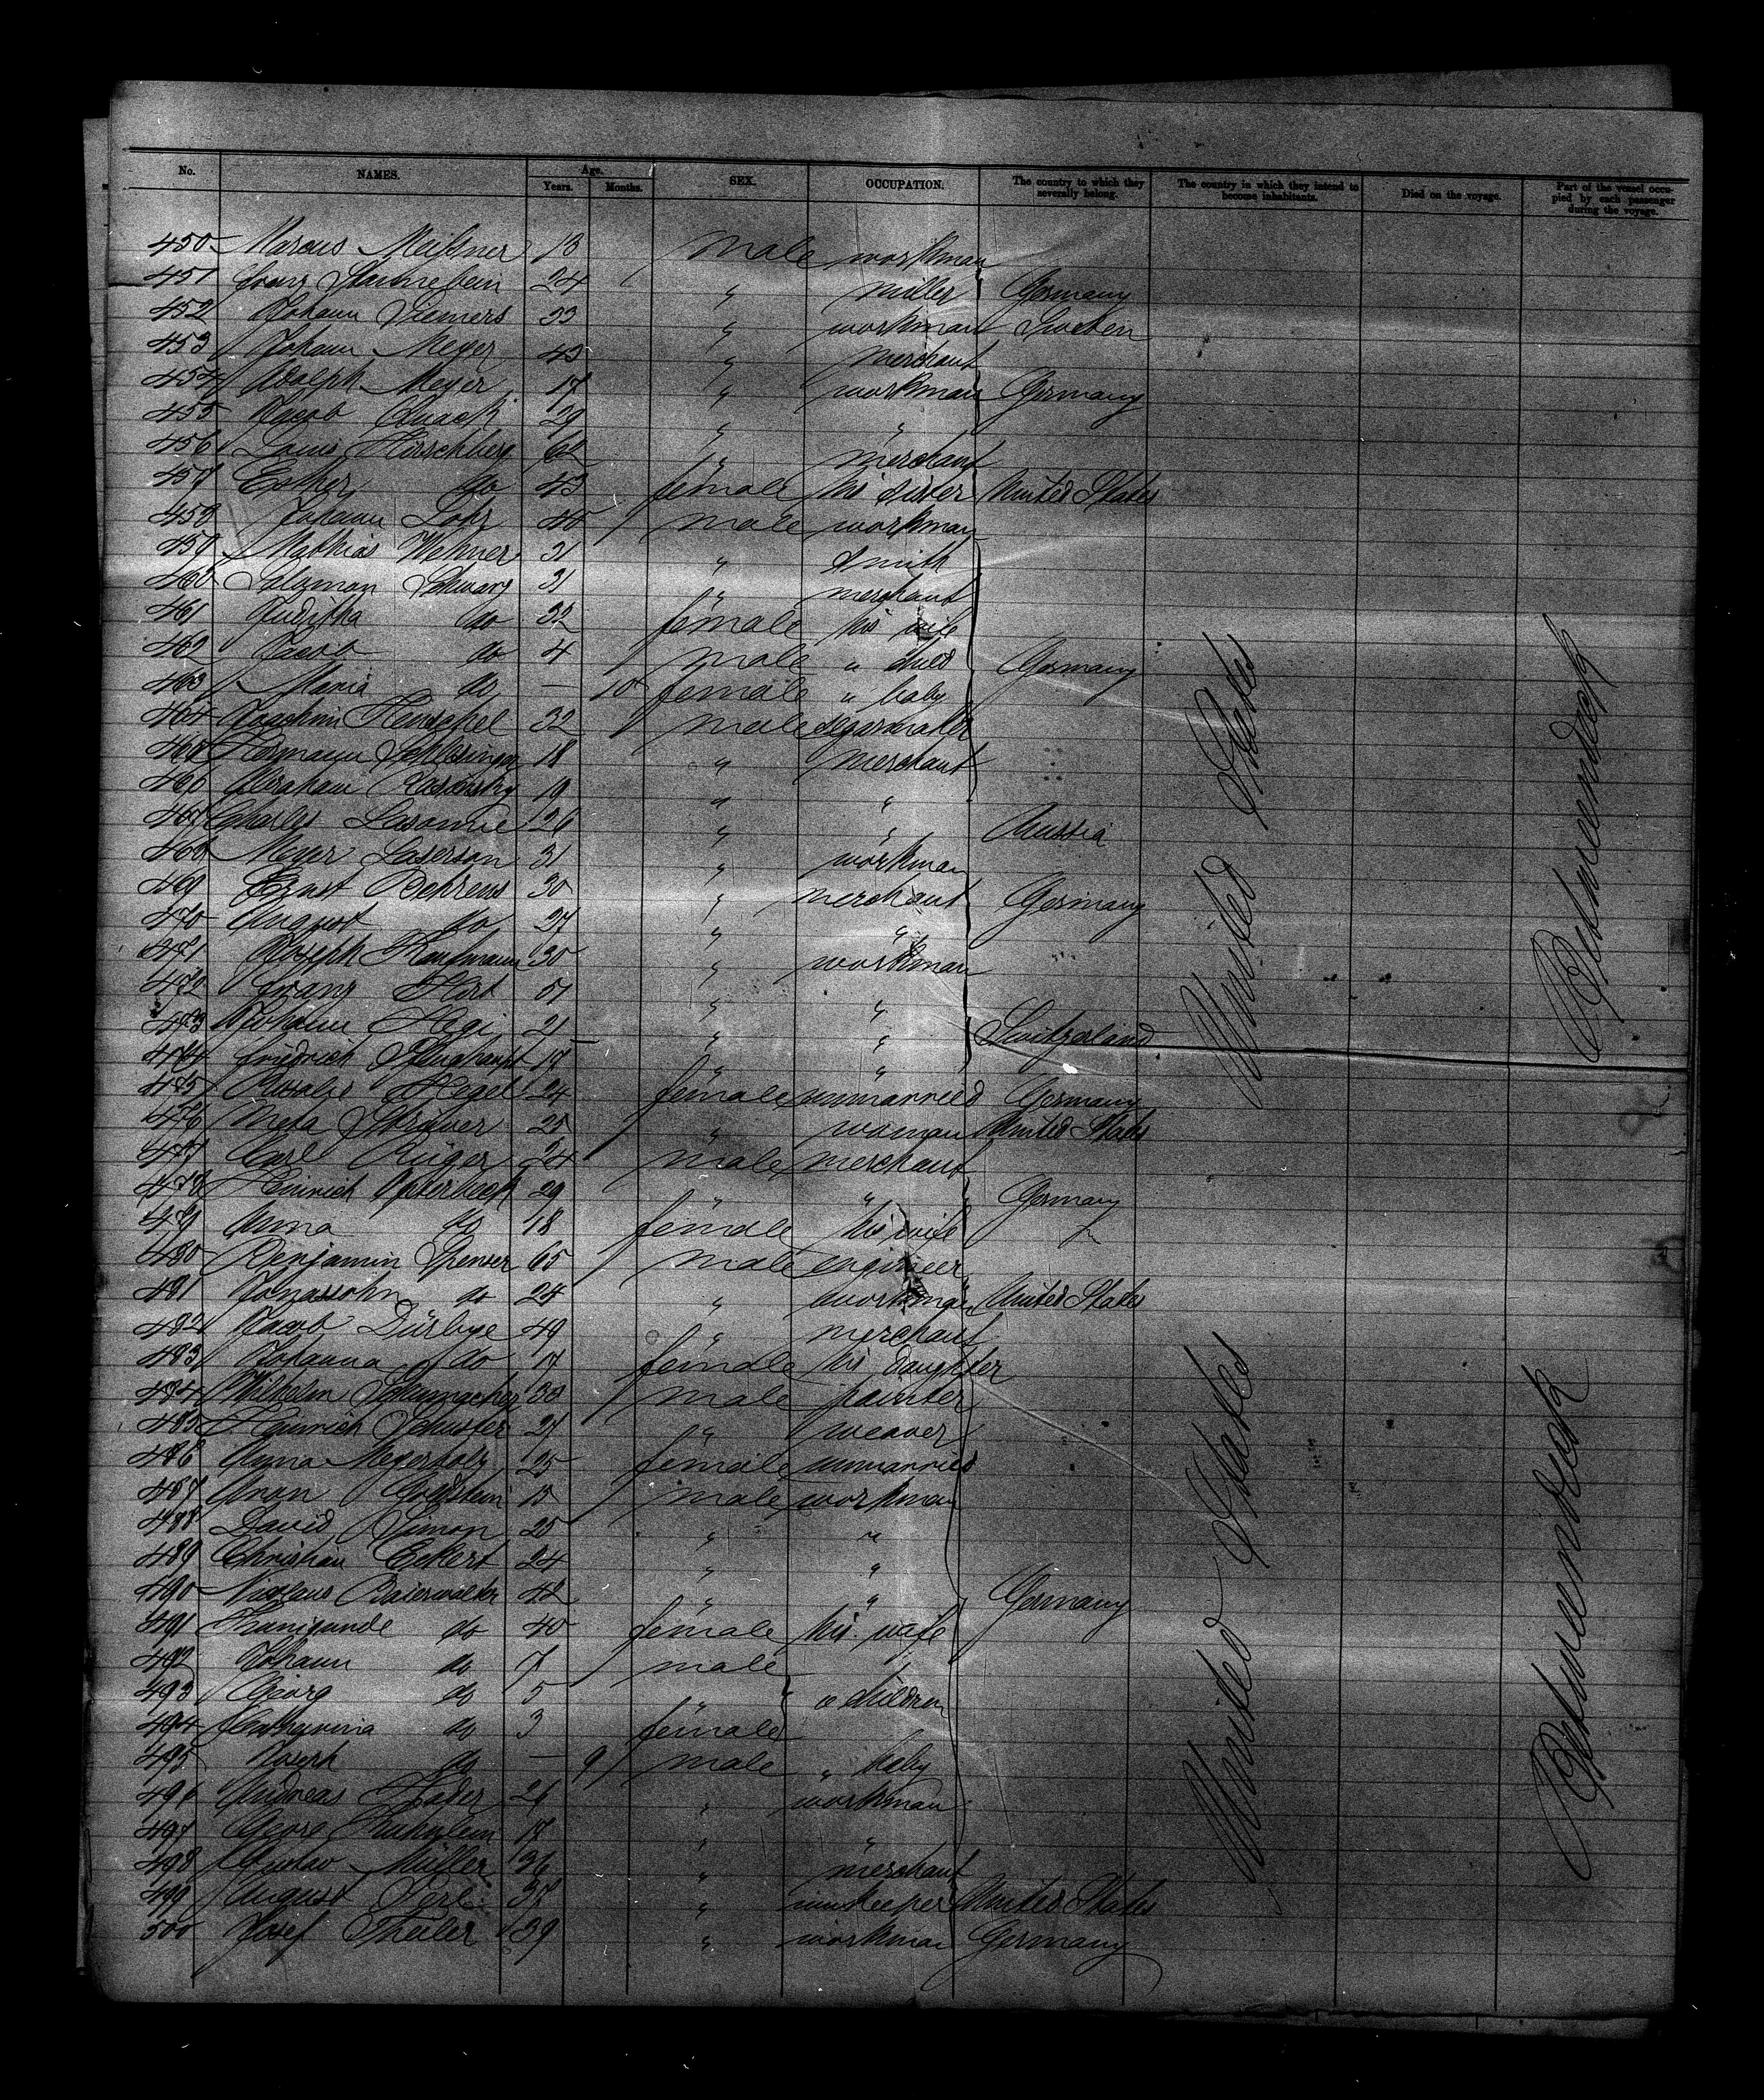 No. NAMES. Age. Years. Months. SEX. OCCUPATION. The country to which they severally belong. The country in which they intend to become inhabitants. Died on the voyage. Part of the vessel occupied by each passenger during the voyage.
450 Marcus Meißner 13 male workman
451 Franz 24 " miller Germany
452 Johann Siemers 33 " workman Sweden
453 Johann Meyer 43 " merchant
454 Adolph Meyer 17 " workman Germany
455 Jacob Quack 29 " "
456 Louis Hirschberg 62 " merchant
457 Esther do 43 female his sister United States
458 Johann Lohr male workman
459 Mathias Wehner 31 " smith
460 Salomon Schwarz 31 " merchant
461 Juditha do 32 female his wife
462 Jacob do 4 male " child Germany
463 Maria do — 10 female " baby
464 Joachim Henschel 32 male segarmaker
465 Hermann Schlesinger 18 " merchant
466 Abraham 19 " "
467 Charles 26 " " Russia
468 Meyer Laserson 31 " workman
469 Ernst Behrens 30 " merchant Germany
470 August do 27 " "
471 Joseph Kaufmann 30 " workman
472 Franz Hirt 51 " "
473 Johann Hegi 21 " " Switzerland
474 Friedrich 17 " "
475 Rosalie Hegel 24 female unmarried Germany
476 Meta Strüver 25 " woman United States
477 Carl Rüger 24 male merchant
478 Heinrich 29 " " Germany
479 Anna do 18 female his wife "
480 Benjamin Spenser 65 male engineer
481 Jonassohn do 24 " workman United States
482 Jacob 49 " merchant
483 Johanna do 17 female his daughter
484 Wilhelm Schumacher 38 male painter
485 Heinrich Schuster 21 " weaver
486 Anna Meyerholz 25 female unmarried
487 Goldstein 15 male workman
488 David Simon 25 " "
489 Christian Eckert 24 " "
490 Nicolaus Baierwalter 42 " " Germany
491 Kunigunde do 40 female his wife
492 Johann do 7 male
493 Georg do 5 " " children
494 Catharina do 3 female
495 Joseph do — 9 male " baby
496 Andreas Hader 26 " workman
497 Georg 17 " "
498 Gustav Müller 36 " merchant
499 August 37 " innkeeper United States
500 Josef Theiler 39 " workman Germany
United States
United States
Betweendeck
Betweendeck